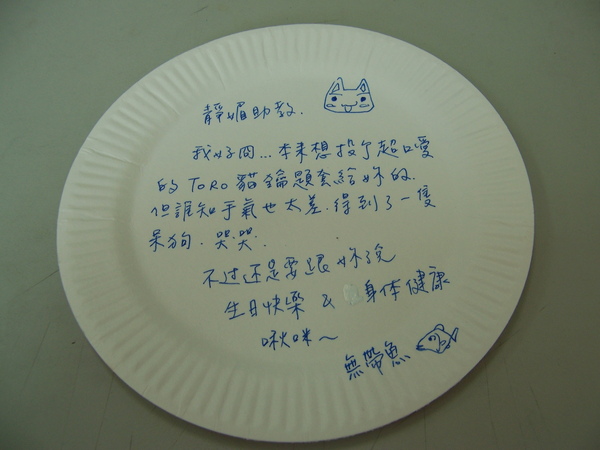 靜媚助教.
我好悶...本來想投个超口愛
的 TORO 貓鑰題套給妳的.
但誰知手氣也太差.得到了一隻
呆狗.哭哭.
不过还是要跟妳說
生日快樂 & 身体健康
啾咪～
無帶魚